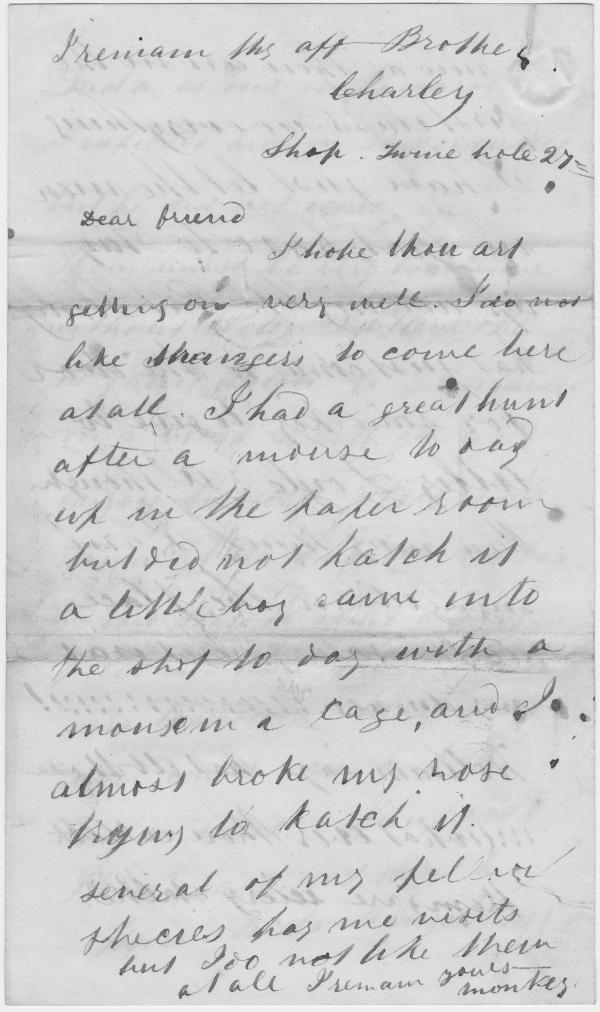 I remain thy aff Brother
Charley
Shop. Twine hole 27
Dear friend
I hope thou art
getting on very well. I do not
like strangers to come here
at all. I had a great hunt
after a mouse to day
up in the paper room
but did not katch it
a little boy came into
the shop to day with a
mouse in a cage, and I
almost broke my nose
trying to katch it.
several of my fellow
species pay me visits
but I do not like them
at all I remain yours
monkey.